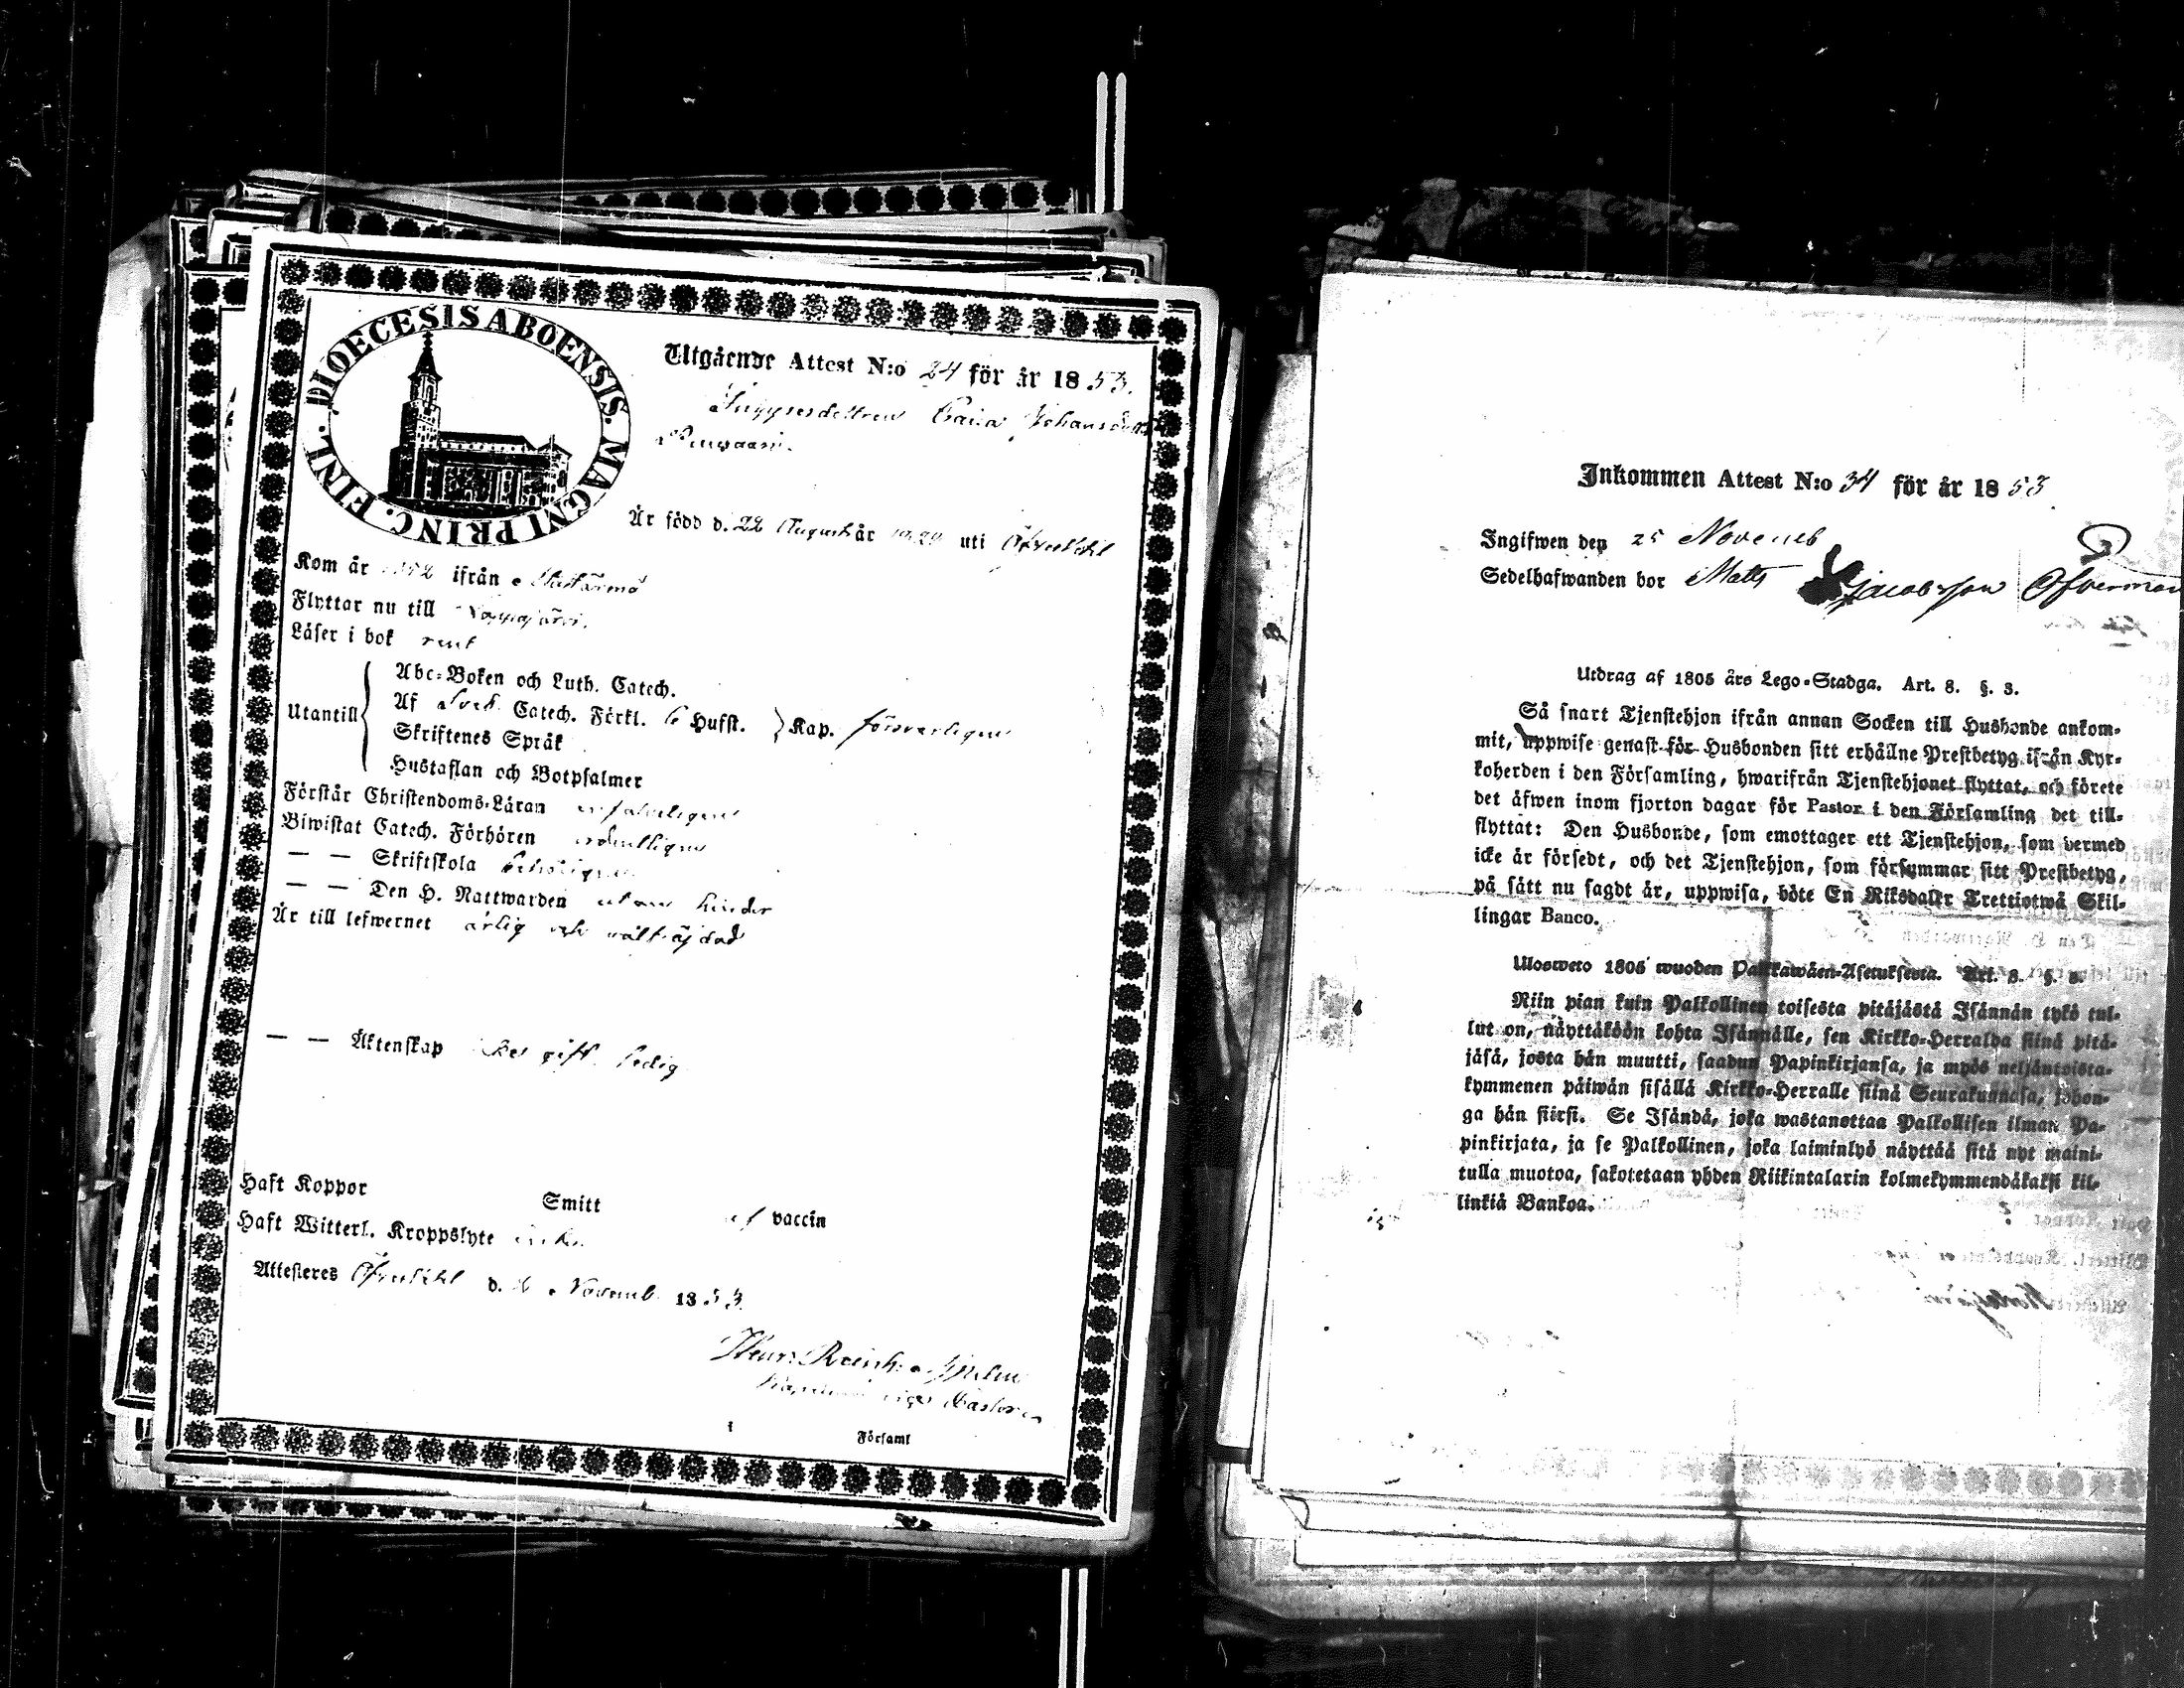 DIOECESIS ABOENSIS. MAGNI PRINC. FINL.
Utgående Attest N:o 24 för år 1853.
Caisa Johansdott
Är född d. 22 August år uti Öfvertihl
Kom år ifrån
Flyttar nu till Lappajärvi.
Läser i bok rent
Utantill
Abc-Boken och Luth. Catech.
Af Sveb. Catech. Förkl. 6 Hufst. Kap. försvarligen
Skriftenes Språk
Hustaflan och Botpsalmer
Förstår Christendoms-Läran
Biwistat Catech. Förhören ordentligen
— — Skriftskola behörigen
— — Den H. Nattwarden utan hinder
Är till lefwernet ärlig och välfräjdad
— — Äktenskap gift ledig
Haft Koppor Smitt af vaccin
Haft Witterl. Kroppslyte icke
Attesteres d. Novemb. 1853.
Pastor
i Församl
Inkommen Attest N:o 34 för år 1853.
Ingifwen den 25 Novemb
Sedelhafwanden bor Matts Jacobsson Öfverman
Utdrag af 1805 års Lego-Stadga. Art. 8. §. 3.
Så snart Tjenstehjon ifrån annan Socken till Husbonde ankom-
mit, uppwise genast för Husbonden sitt erhållne Prestbetyg ifrån Kyr-
koherden i den Församling, hwarifrån Tjenstehjonet flyttat, och förete
det äfwen inom fjorton dagar för Pastor i den Församling det till-
flyttat: Den Husbonde, som emottager ett Tjenstehjon, som dermed
icke är försedt, och det Tjenstehjon, som försummar sitt Prestbetyg,
på sätt nu sagdt är, uppwisa, böte En Riksdaler Trettiotwå Skil-
lingar Banco.
Ulosweto 1805 wuoden Palkkawäen-Asetuksesta. Art. 8. §. 3.
Niin pian kuin Palkollinen toisesta pitäjästä Isännän tykö tul-
lut on, näyttäköön kohta Isännälle, sen Kirkko-Herralda siinä pitä-
jäsä, josta hän muutti, saadun Papinkirjansa, ja myös neljäntoista-
kymmenen päiwän sisällä Kirkko-Herralle siinä Seurakunnasa, johon-
ga hän siirsi. Se Isändä, joka wastanottaa Palkollisen ilman Pa-
pinkirjata, ja se Palkollinen, joka laiminlyö näyttää sitä nyt maini-
tulla muotoa, sakotetaan yhden Riikintalarin kolmekymmendäkaksi kil-
linkiä Bankoa.